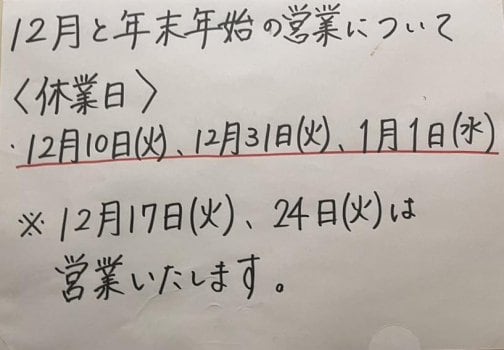 12月と年末年始の営業について
〈休業日〉
・12月10日(火)、12月31日(火)、1月1日(水)
※12月17日(火)、24日(火)は
営業いたします。